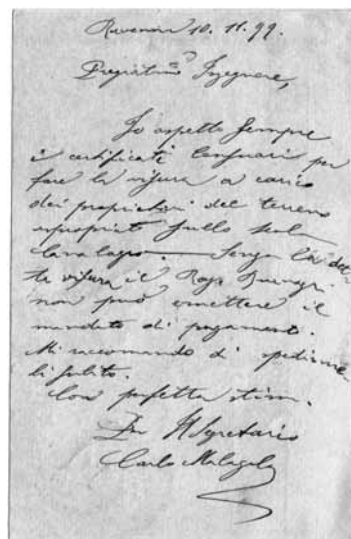 Ravenna 10. 11. 99.
Pregiatmo Ingegnere,
Io aspetto sempre
i certificati censuari per
fare la visura a carico
dei proprietari del terreno
espropriato sullo scolo
Canalazzo. Senza la det-
ta visura il Rag.
non può emettere il
mandato di pagamento.
Mi raccomando di spedirme-
li subito.
Con perfetta stima.
Il Segretario
Carlo Malagola